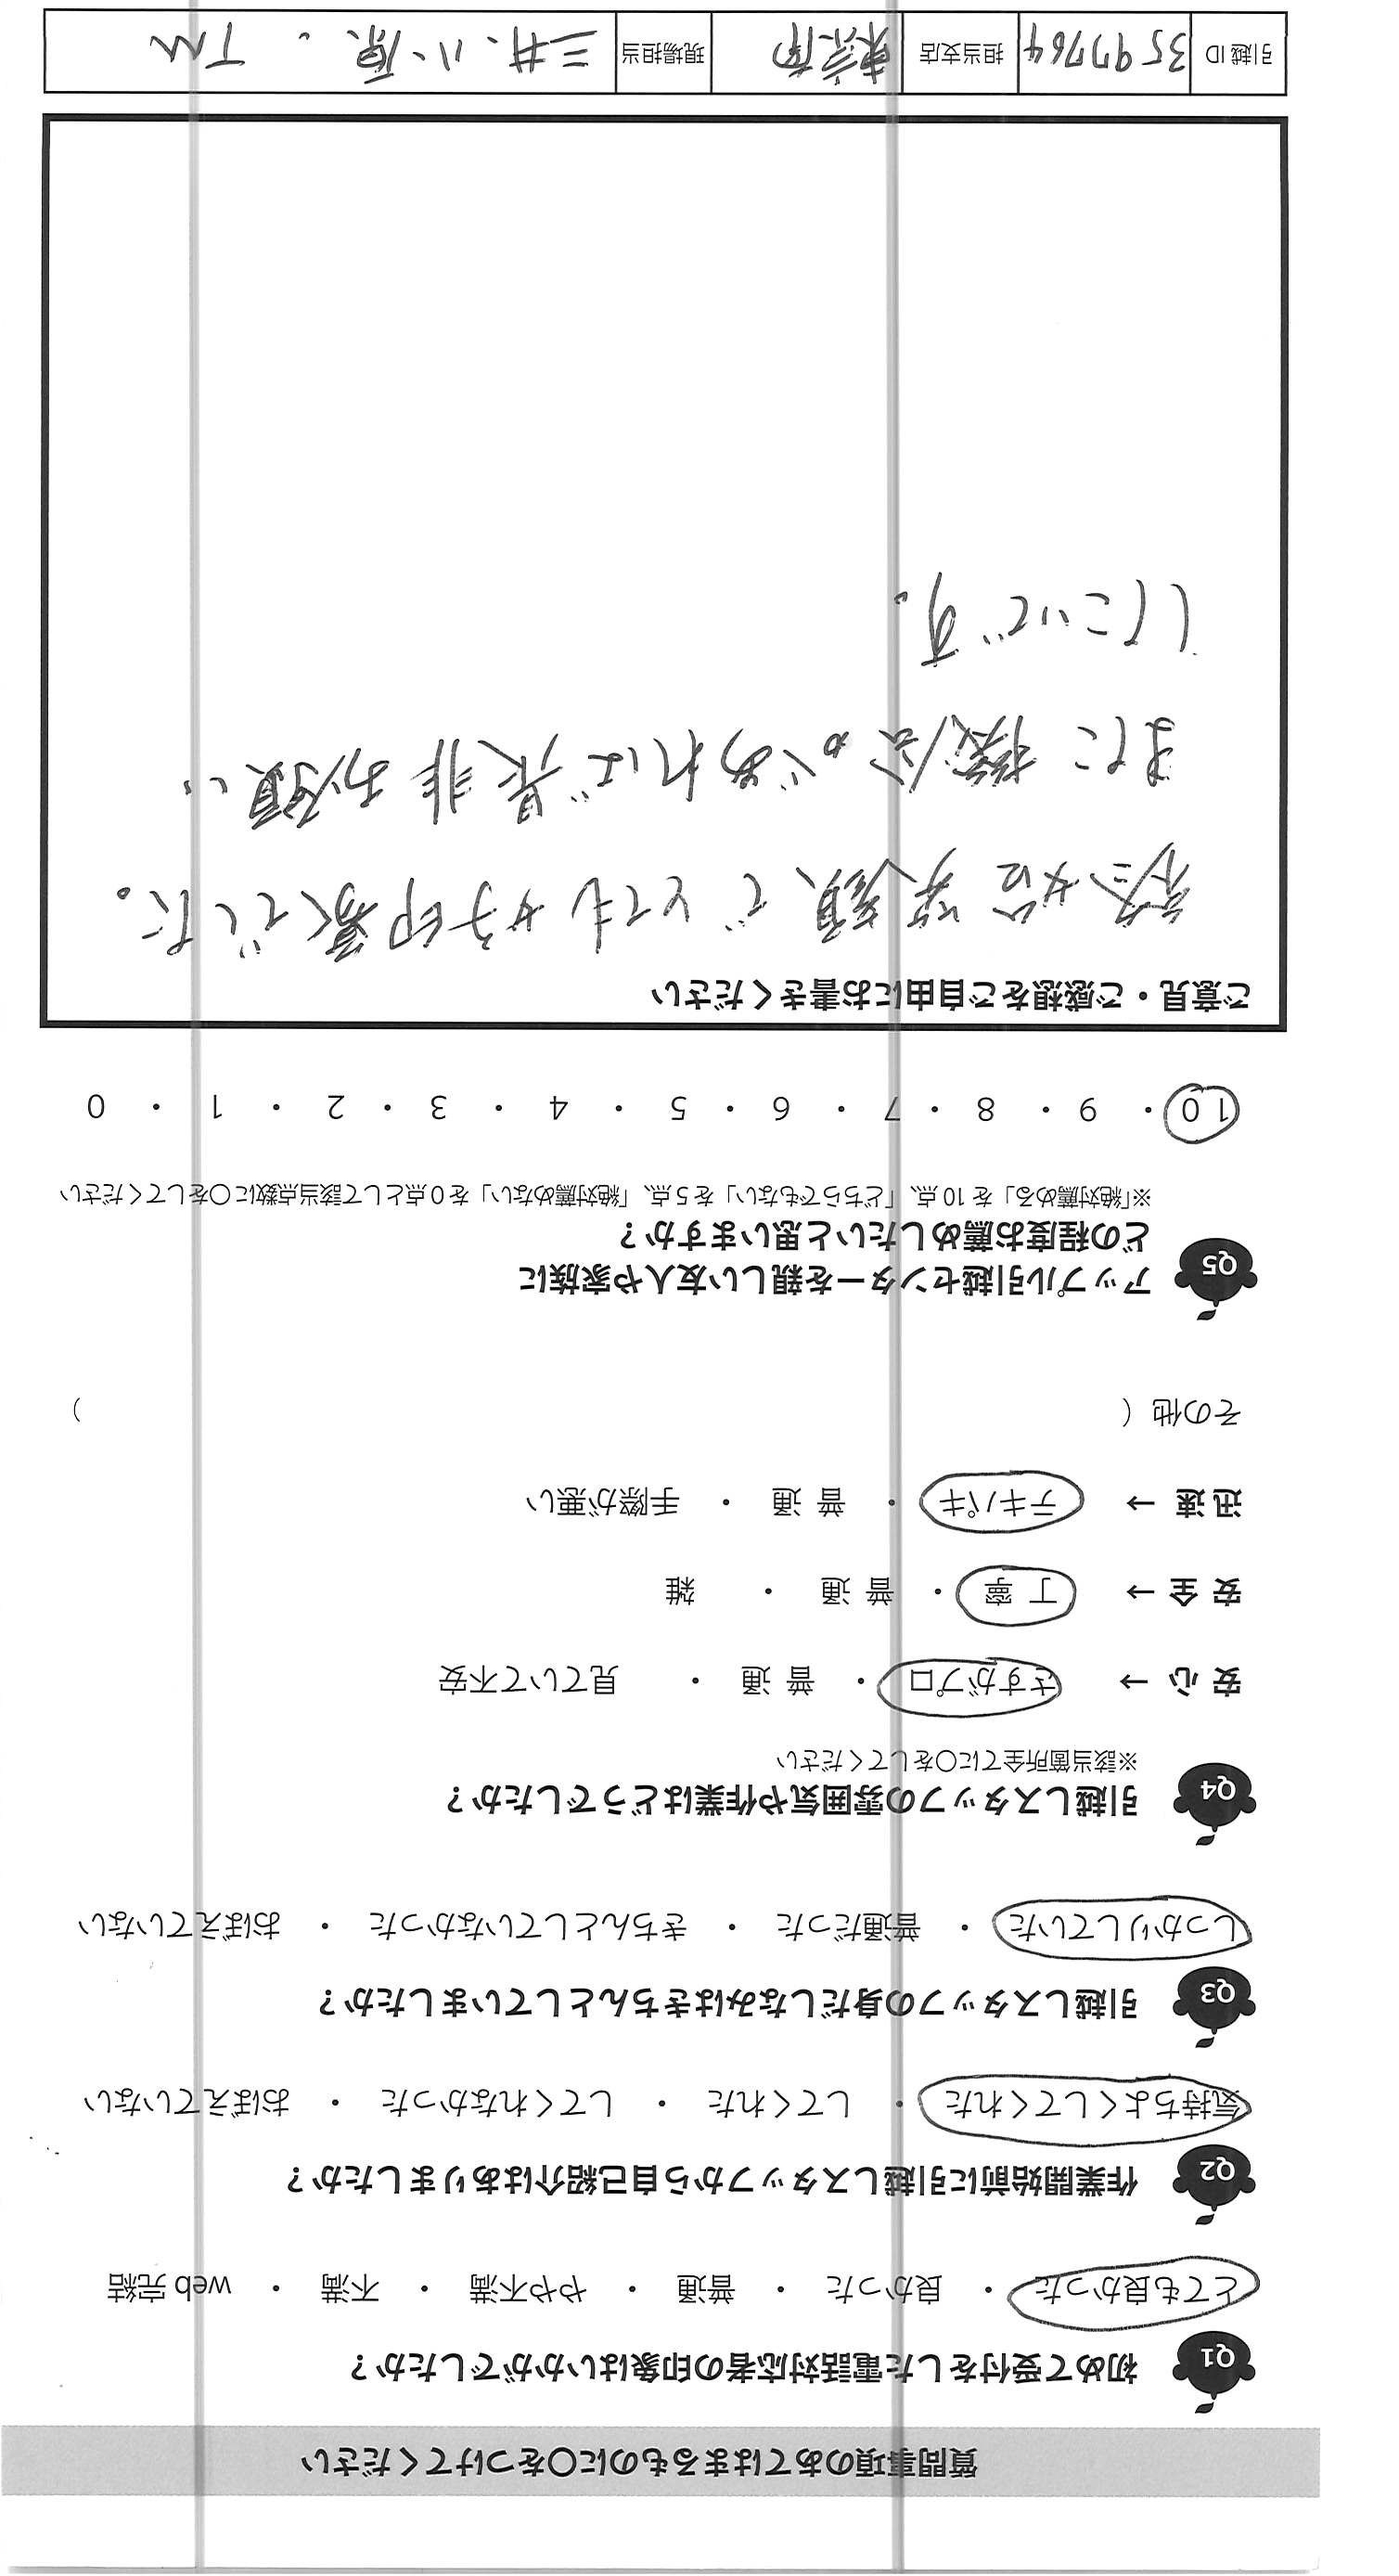 質問事項のあてはまるものに〇をつけてください
Q1 初めて受付をした電話対応者の印象はいかがでしたか？
とても良かった ・ 良かった ・ 普通 ・ やや不満 ・ 不満 ・ web 完結
Q2 作業開始前に引越しスタッフから自己紹介はありましたか？
気持ちよくしてくれた ・ してくれた ・ してくれなかった ・ おぼえていない
Q3 引越しスタッフの身だしなみはきちんとしていましたか？
しっかりしていた ・ 普通だった ・ きちんとしていなかった ・ おぼえていない
Q4 引越しスタッフの雰囲気や作業はどうでしたか？
※該当箇所全てに〇をしてください
安心 → さすがプロ ・ 普通 ・ 見ていて不安
安全 → 丁寧 ・ 普通 ・ 雑
迅速 → テキパキ ・ 普通 ・ 手際が悪い
その他（ ）
Q5 アップル引越センターを親しい友人や家族に
どの程度お薦めしたいと思いますか？
※「絶対薦める」を10点、「どちらでもない」を5点、「絶対薦めない」を0点として該当点数に〇をしてください
10 ・ 9 ・ 8 ・ 7 ・ 6 ・ 5 ・ 4 ・ 3 ・ 2 ・ 1 ・ 0
ご意見・ご感想をご自由にお書きください
終始笑顔でとても好印象でした。
また機会があれば是非お願い
したいです。
引越ID 3597764 担当支店 東京南 現場担当 三井、小原、